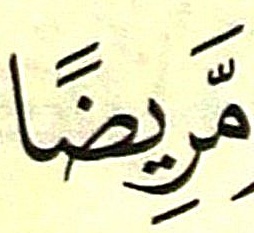 مَّرِيضًا